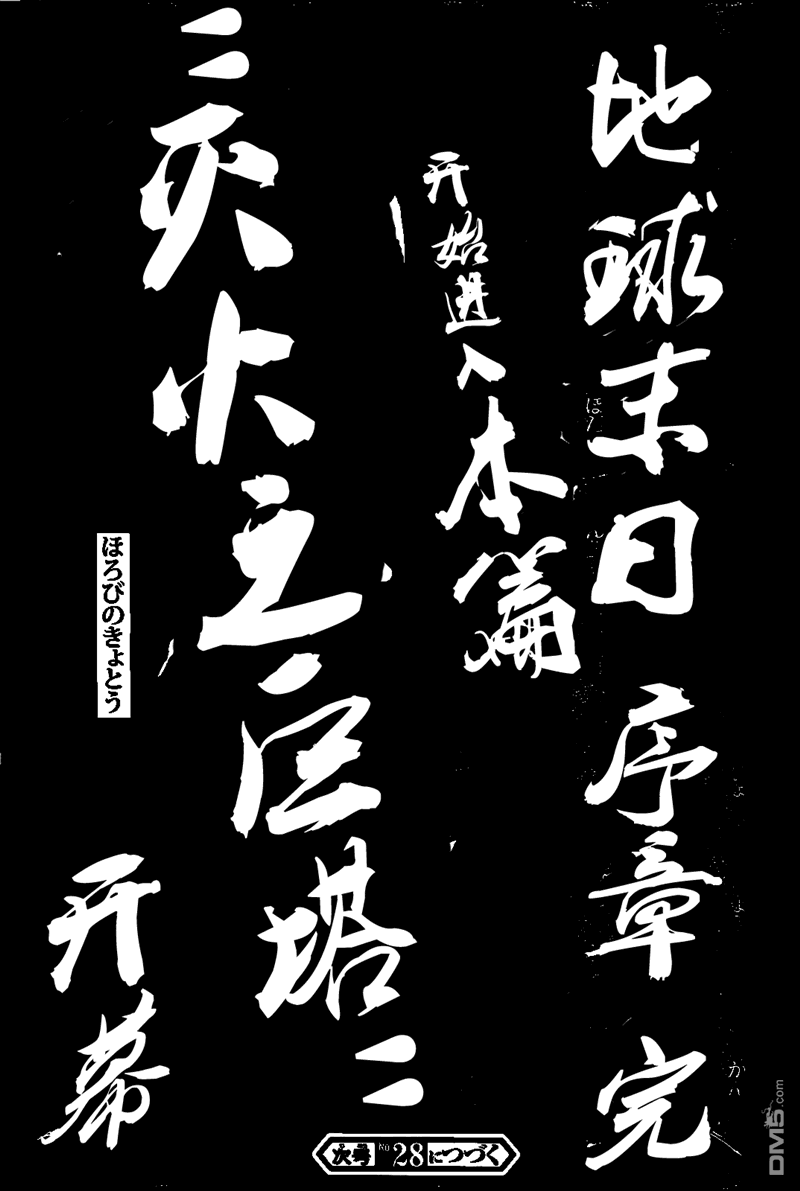 地球末日 序章 完
开始进入本篇
〃灭火之巨塔〃
ほろびのきょとう
开幕
次号 No28につづく
DM5.com